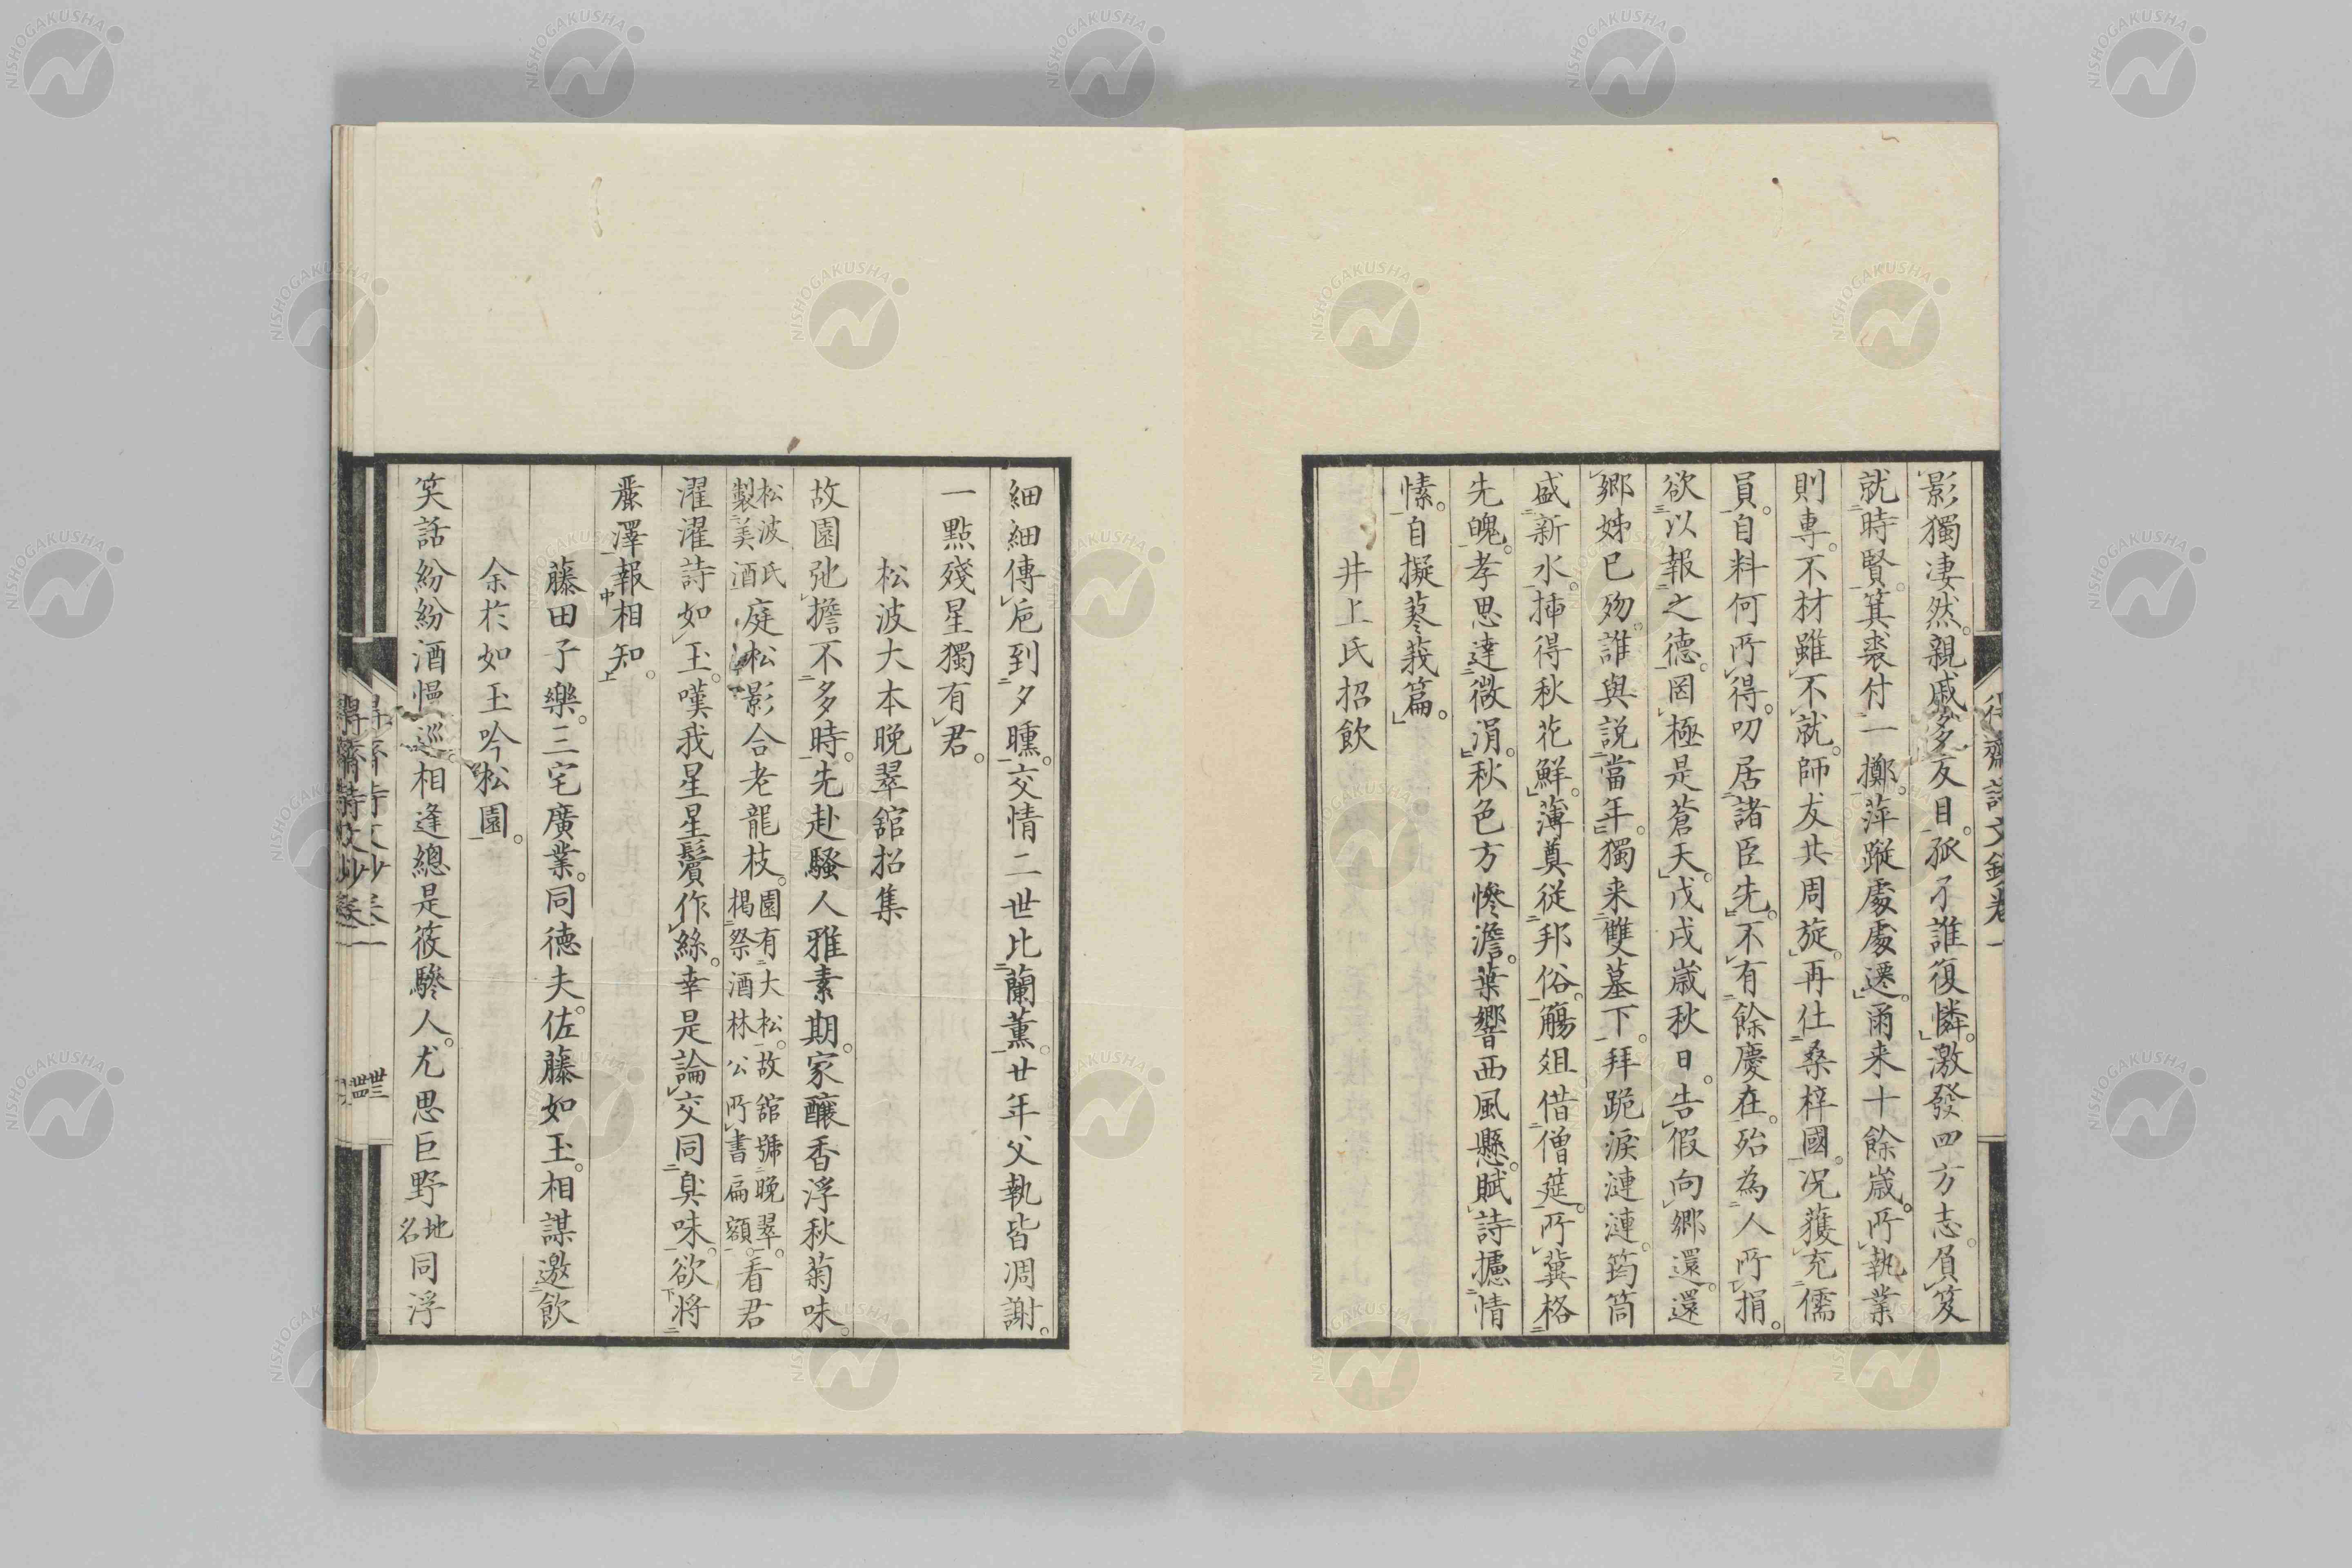 影獨凄然。親戚多反目。孤孑誰復憐。激發四方志。負笈
就時賢。箕裘付一擲。萍蹤處處遷。爾来十餘歳。所執業
則專。不材雖不就。師友共周旋。再仕桑梓國。况獲充儒
員。自料何所得。叨居諸臣先。不有餘慶在。殆為人所捐。
欲以報之德。罔極是蒼天。戊戌歳秋日。告假向郷還。還
郷姊已歾。誰與説當年。獨来雙墓下。拜跪淚漣漣。筠筒
盛新水。挿得秋花鮮。薄奠従邦俗。觴俎借僧筵。所冀格
先魄。孝思達微涓。秋色方慘澹。葉響西風懸。賦詩攄情
愫。自擬蓼莪篇。
井上氏招飲
細細傳卮到夕曛。交情二世比蘭薫。廿年父執皆凋謝。
一點殘星獨有君。
松波大本晩翠舘招集
故園弛擔不多時。先赴騷人雅素期。家釀香浮秋菊味。
松波氏製美酒庭松影合老龍枝。園有大松。故舘號晩翠。掲祭酒林公所書扁額。看君
濯濯詩如玉。嘆我星星鬢作絲。幸是論交同臭味。欲将
麗澤報相知。
藤田子樂。三宅廣業。同德夫。佐藤如玉。相謀邀飲
余於如玉吟松園。
笑話紛紛酒慍巡。相逢總是筱驂人。尤思巨野地名同浮